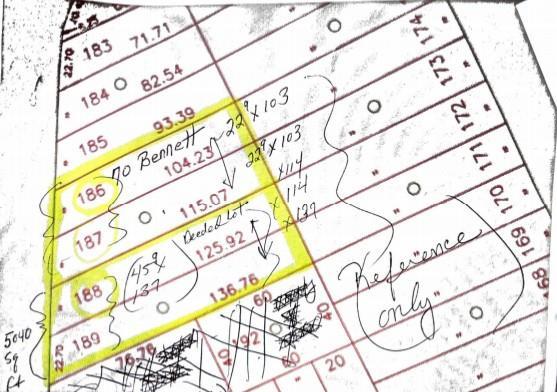 183 71.71
22.70
184 82.54
185 93.39
22⁹ x 103
186 no Bennett
104.23
22⁹ x 103
x 114
187 115.07
x 114
x 137
Deeded Lot
188 125.92
(45⁹ x
137)
136.76
5040
sq
ft
22.70 189
76.76
60
40
192
40
60
20
174
173
172
171
170
169
168
Reference
only